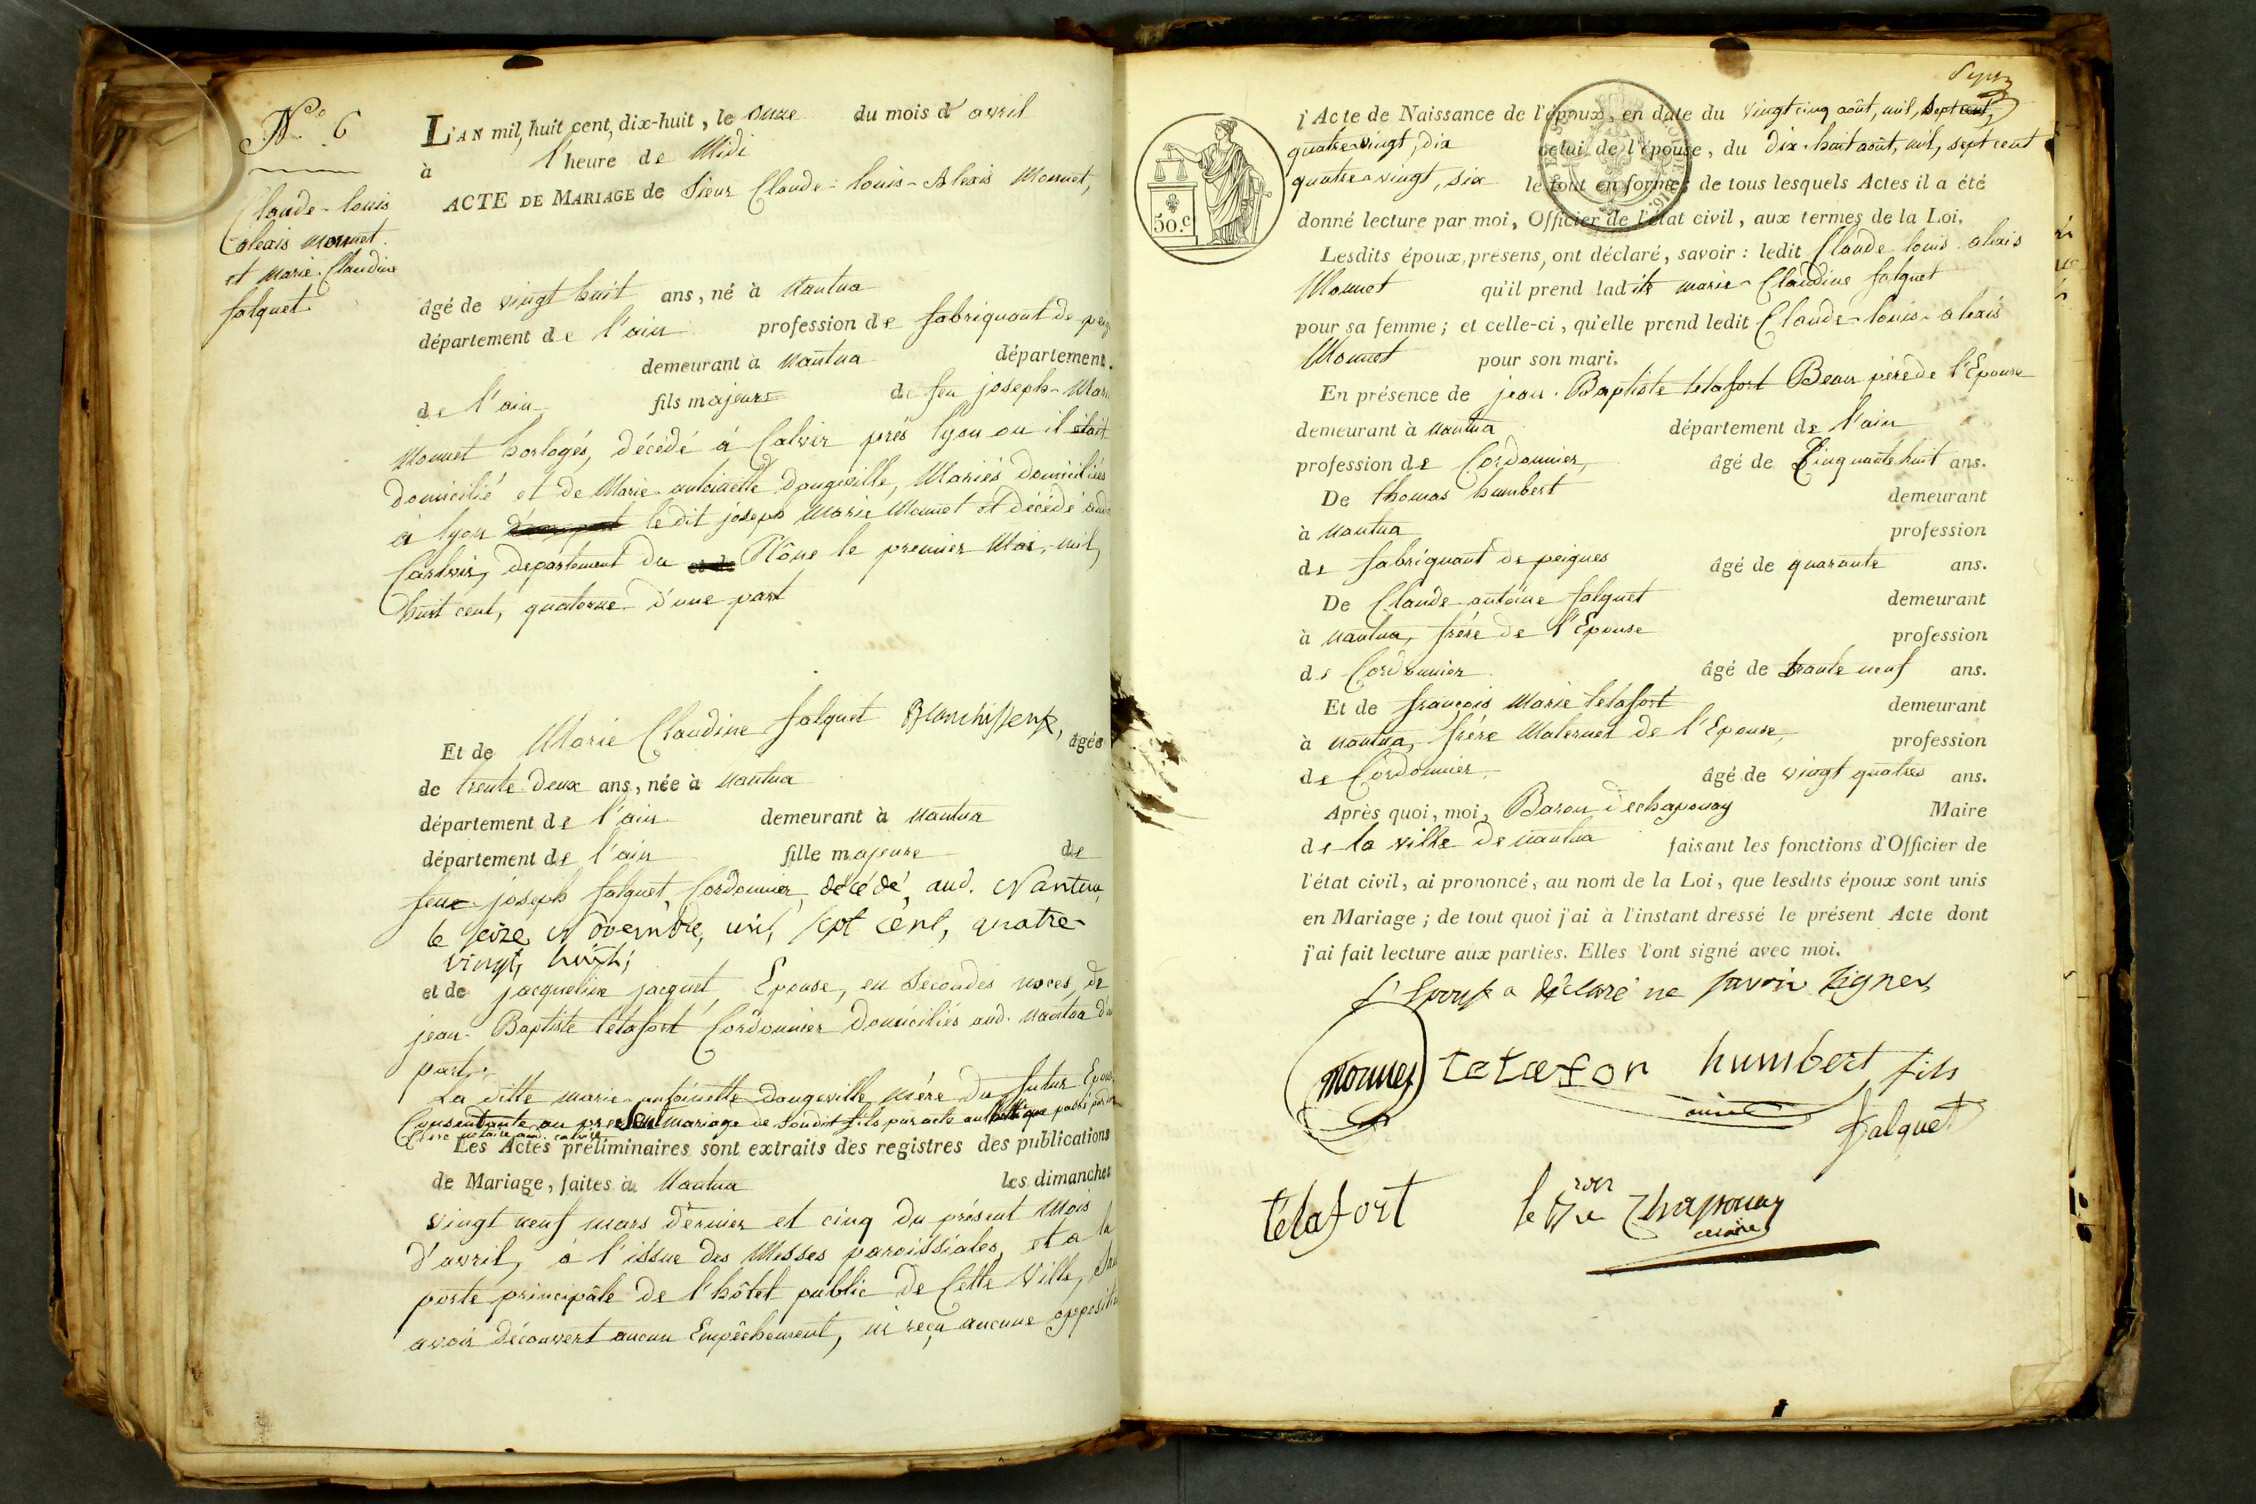 N.° 6
Claude-louis
alexis monnet
et marie Claudine
falquet
L'AN mil, huit cent, dix-huit, le onze du mois d'avril
à l'heure de Midi
ACTE DE MARIAGE de Sieur Claude-louis-Alexis Monnet,
âgé de vingt huit ans, né à Nantua
département de l'ain profession de fabriquant de peig
demeurant à Nantua département
de l'ain fils majeur de feu joseph-Mari
Monnet horloger, décédé à Caluir près lyon ou il était
domicilié et de Marie antoinette Dougeville, Mariés domiciliés
à lyon ledit joseph Marie Monnet est décédé aud
Caluir, département du Rône le premier Mai, mil,
huit cent, quatorze d'une part
Et de Marie Claudine falquet Blanchisseuse, âgée
de trente deux ans, née à Nantua
département de l'ain demeurant à Nantua
département de l'ain fille majeure de
feu joseph falquet, Cordonnier, décédé, aud. Nantua,
le seize Novembre, mil, sept cent, quatre-
vingt, huit;
et de jacqueline jacquet, Epouse, en secondes noces, de
jean-Baptiste tétafort Cordonnier domiciliés aud. Nantua d'
part.
La ditte marie-antoinette dougeville, mère du futur Epoux
Consentante au present mariage de soudit fils par acte authentique passé par
Clerc notaire aud. caluire
Les Actes préliminaires sont extraits des registres des publications
de Mariage, faites à Nantua les dimanches
vingt neuf mars dernier et cinq du présent Mois
d'avril, à l'issue des Messes paroissiales, et a la
porte principâle de l'hôtel public de Cette Ville, sans
avoir découvert aucun Empêchement, ni reçu aucune oppositi
l'Acte de Naissance de l'époux, en date du vingt cinq août, mil, sept cent,
quatre-vingt, dix celui de l'épouse, du dix-huit août, mil, sept cent
quatre-vingt, six le tout en forme; de tous lesquels Actes il a été
donné lecture par moi, Officier de l'état civil, aux termes de la Loi.
50.c
Lesdits époux, présens, ont déclaré, savoir : ledit Claude louis alexis
Monnet qu'il prend ladite marie-Claudine falquet
pour sa femme; et celle-ci, qu'elle prend ledit Claude-louis-alexis
Monnet pour son mari.
En présence de jean-Baptiste tétafort Beau père de l'Epouse
demeurant à Nantua département de l'ain
profession de Cordonnier, âgé de Cinquante huit ans.
De thomas humbert demeurant
à Nantua profession
de fabriquant de peignes âgé de quarante ans.
De Claude antoine falquet demeurant
à Nantua, frére de l'Epouse profession
de Cordonnier âgé de trante neuf ans.
Et de françois Marie tetafort demeurant
à Nantua, frére Maternel de l'Epouse, profession
de Cordonnier, âgé de vingt quatres ans.
Après quoi, moi, Baron dechapouay Maire
de la ville de Nantua faisant les fonctions d'Officier de
l'état civil, ai prononcé, au nom de la Loi, que lesdits époux sont unis
en Mariage; de tout quoi j'ai à l'instant dressé le présent Acte dont
j'ai fait lecture aux parties. Elles l'ont signé avec moi.
L'Epouse a déclaré ne savoir signer
monnet tetafor humbert fils
ainé
falquet
tétafort le Chapouay
maire